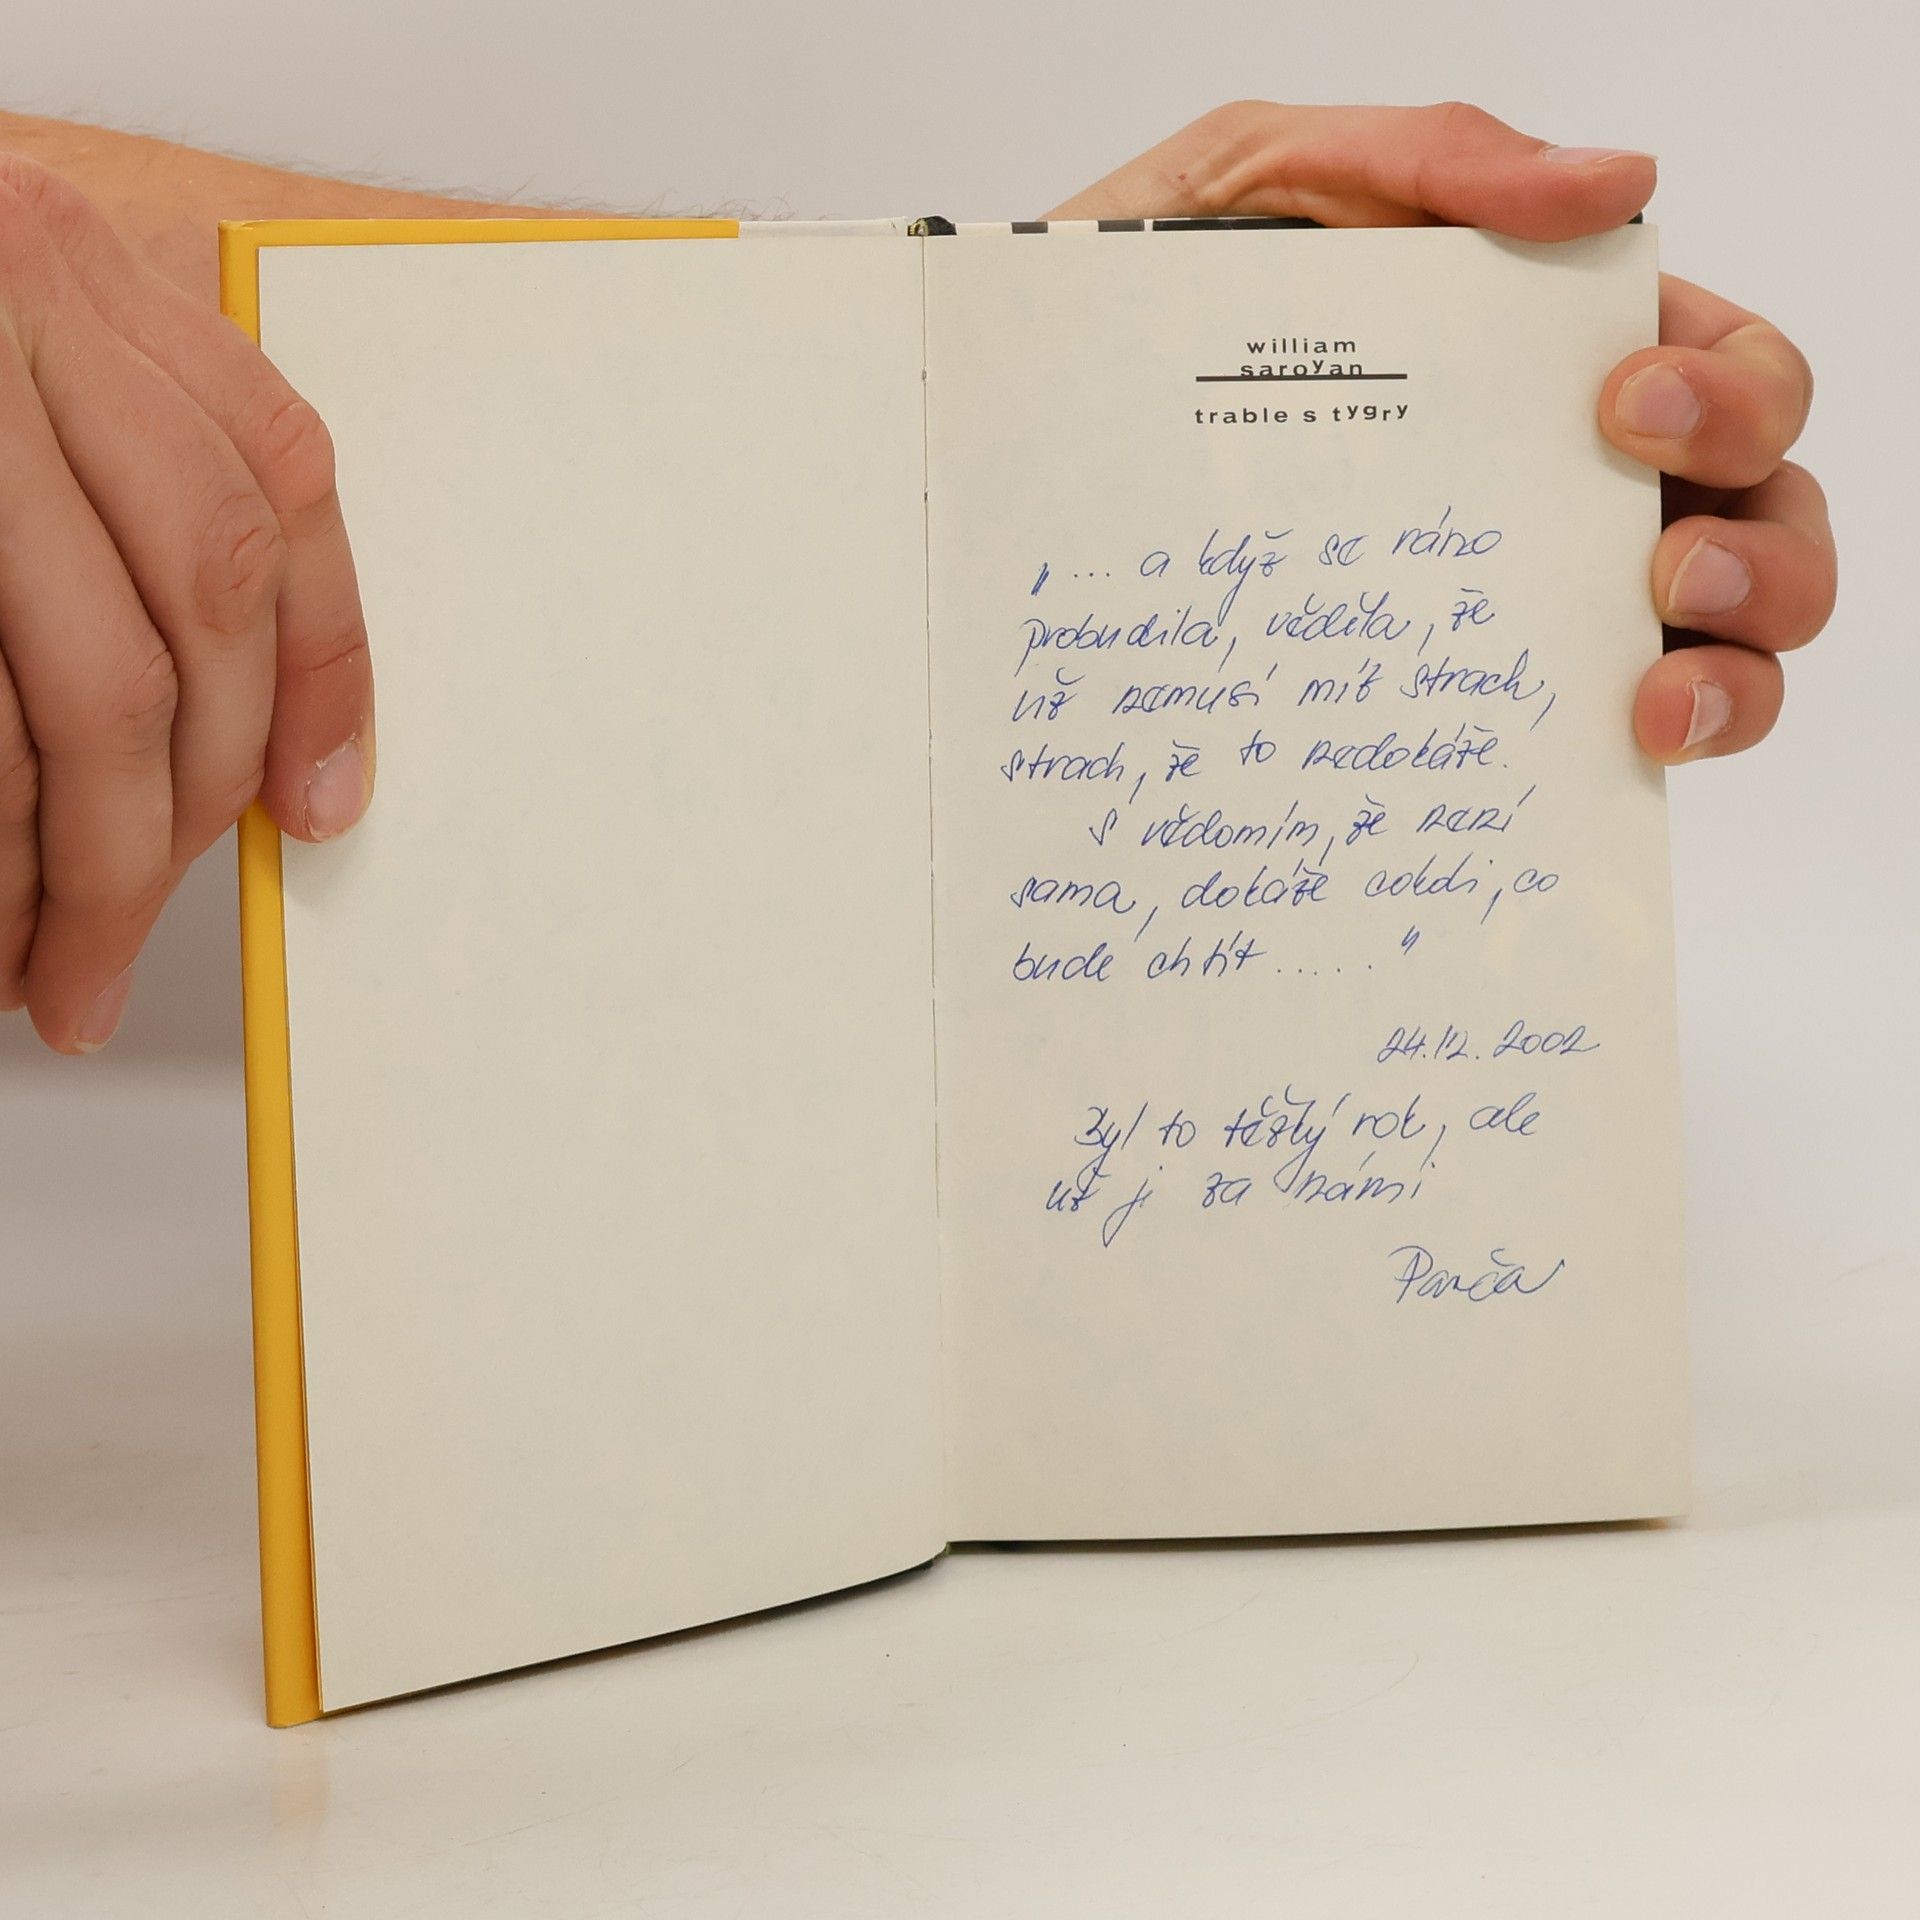 william
saroyan
trable s tygry
„ ... a když se ráno
probudila, věděla, že
už nemusí mít strach,
strach, že to nedokáže.
S vědomím, že není
sama, dokáže cokoli, co
bude chtít ..... "
24.12. 2002
Byl to těžký rok, ale
už je za námi
Panča